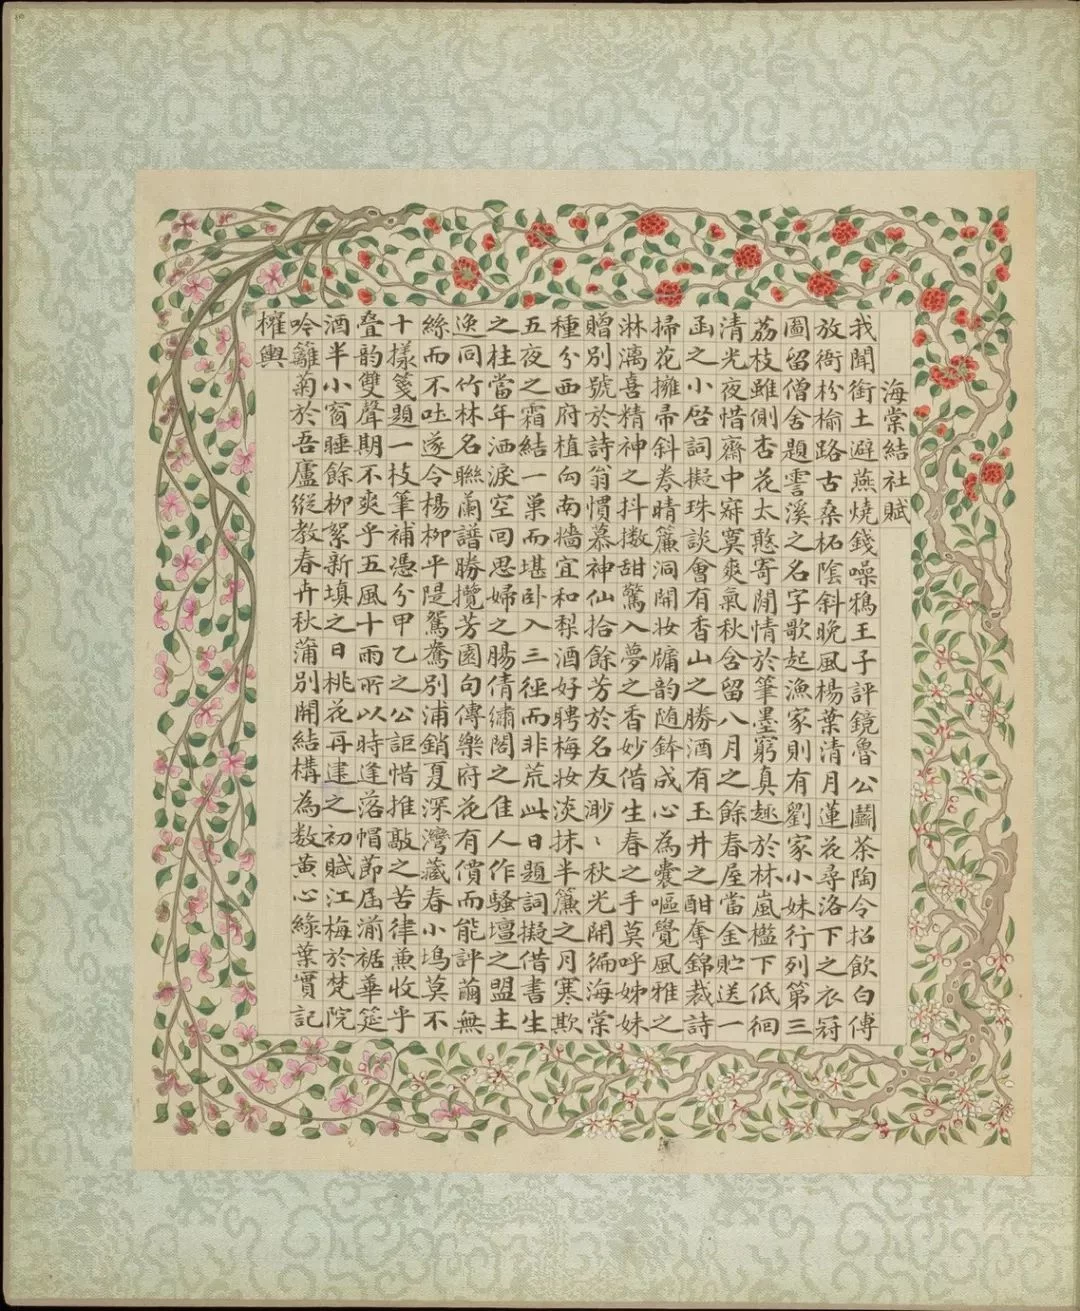 海棠結社賦
我聞銜土避燕燒錢噪鴉王子評鏡魯公鬭茶陶令招飲白傅
放衙枌榆路古桑柘陰斜晚風楊葉清月蓮花尋洛下之衣冠
圖留僧舍題霅溪之名字歌起漁家則有劉家小妹行列第三
荔枝雖側杏花太憨寄閒情於筆墨窮真趣於林嵐檻下低徊
清光夜惜齋中寂寞爽氣秋含留八月之餘春屋當金貯送一
函之小啓詞擬珠談會有香山之勝酒有玉井之酣奪錦裁詩
掃花擁帚斜卷晴簾洞開妝牖韵随鉢成心為囊嘔覺風雅之
淋漓喜精神之抖擻甜驚入夢之香妙借生春之手莫呼姊妹
贈別號於詩翁慣慕神仙拾餘芳於名友渺〻秋光開徧海棠
種分西府植向南墻宜和梨酒好聘梅妝淡抹半簾之月寒欺
五夜之霜結一巢而堪卧入三徑而非荒此日題詞擬借書生
之柱當年洒淚空回思婦之腸倩繡閣之佳人作騷壇之盟主
逸同竹林名聯蘭譜勝攬芳園句傳樂府花有價而能評繭無
絲而不吐遂令楊柳平隄鴛鴦別浦銷夏深灣藏春小塢莫不
十樣箋題一枝筆補憑分甲乙之公詎惜推敲之苦律兼收乎
叠韵雙聲期不爽乎五風十雨所以時逢落帽節屆湔裾華筵
酒半小窗睡餘柳絮新填之日桃花再建之初賦江梅於梵院
吟籬菊於吾廬縱教春卉秋蒲別開結構為数黄心綠葉實記
權輿